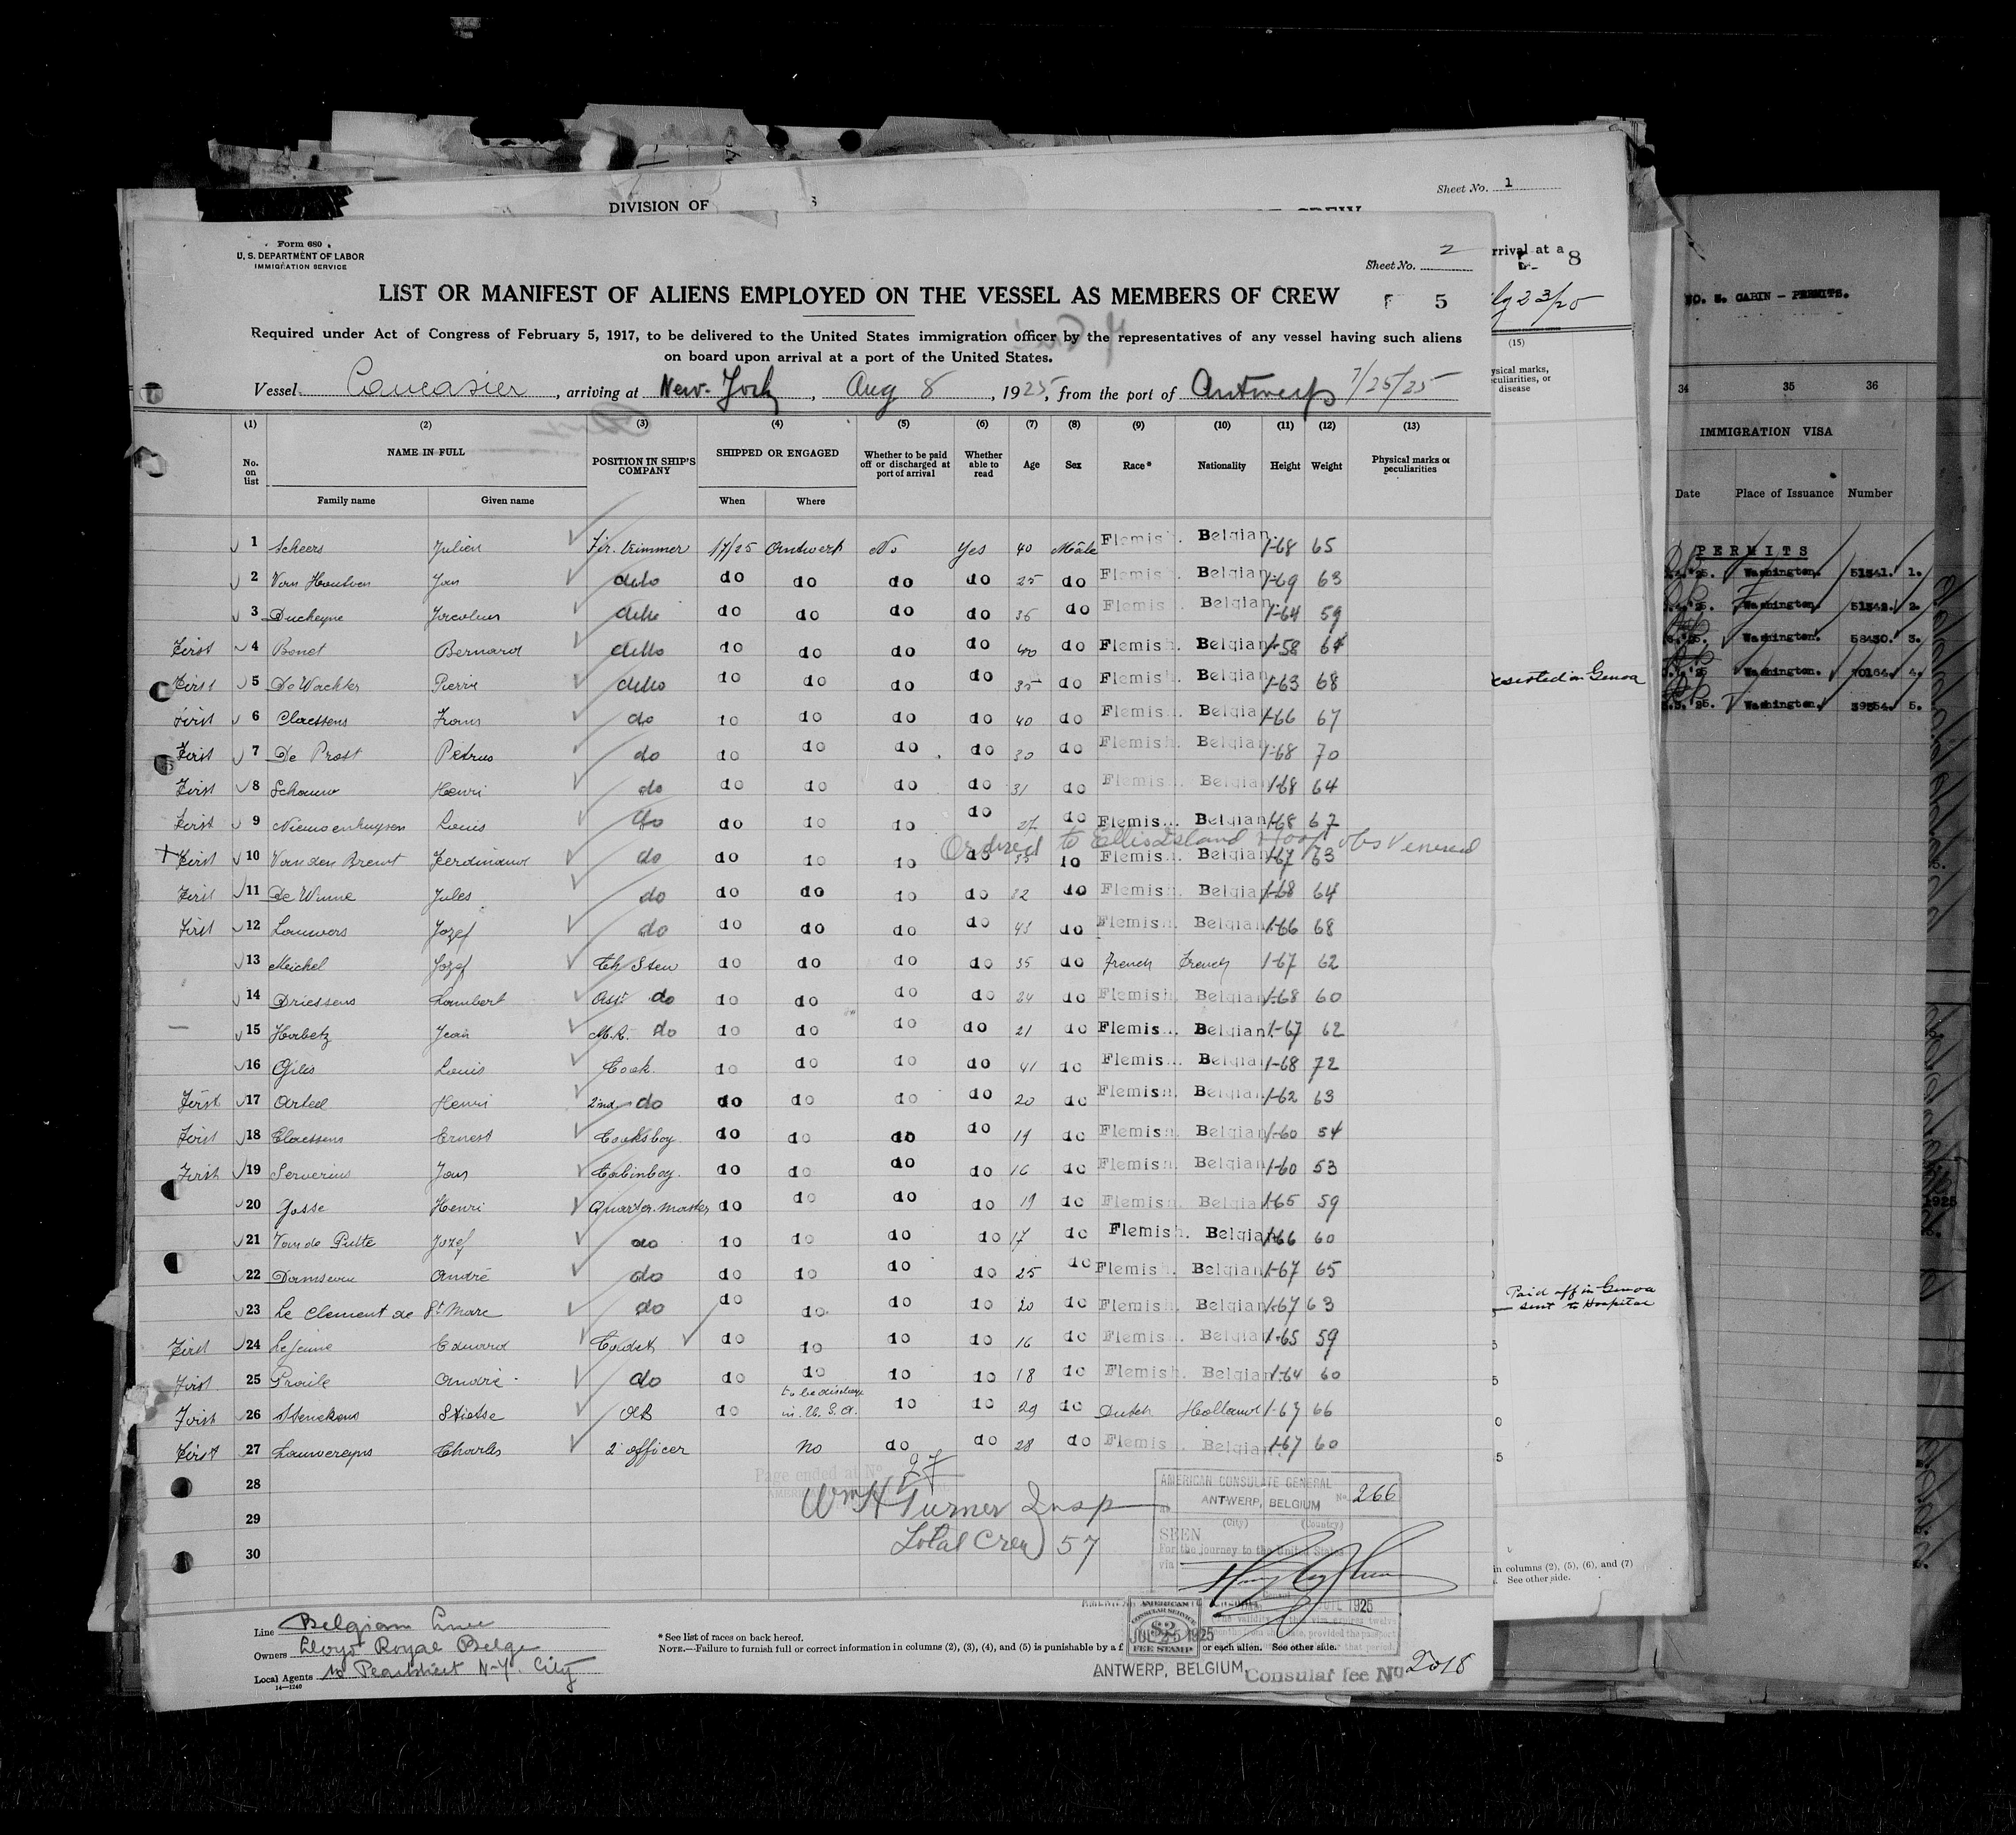 Sheet No. 1
DIVISION OF
Form 680
U. S. DEPARTMENT OF LABOR
IMMIGRATION SERVICE
Sheet No. 2
LIST OR MANIFEST OF ALIENS EMPLOYED ON THE VESSEL AS MEMBERS OF CREW
5
Required under Act of Congress of February 5, 1917, to be delivered to the United States immigration officer by the representatives of any vessel having such aliens
on board upon arrival at a port of the United States.
Vessel Caucasier, arriving at New-York, Aug 8, 1925, from the port of Antwerp 7/25/25
(1) (2) (3) (4) (5) (6) (7) (8) (9) (10) (11) (12) (13)
No. on list NAME IN FULL POSITION IN SHIP'S COMPANY SHIPPED OR ENGAGED Whether to be paid off or discharged at port of arrival Whether able to read Age Sex Race* Nationality Height Weight Physical marks or peculiarities
Family name Given name When Where
1 Scheers Julien Fir. trimmer 17/25 Antwerp No Yes 40 Male Flemish. Belgian. 1-68 65
2 Van Houtven Jan ditto do do do do 25 do Flemish. Belgian. 1-69 63
3 Ducheyne ditto do do do do 36 do Flemish. Belgian. 1-64 59
First 4 Benet Bernard ditto do do do do 40 do Flemish. Belgian. 1-58 64
First 5 De Wachter Pierre ditto do do do do 35 do Flemish. Belgian. 1-63 68
First 6 Claessens Frans do do do do do 40 do Flemish. Belgian. 1-66 67
First 7 De Prost Petrus do do do do do 30 do Flemish. Belgian. 1-68 70
First 8 Schouw Henri do do do do do 31 do Flemish. Belgian. 1-68 64
First 9 Nieuwenhuysen Louis do do do do do 27 do Flemish. Belgian. 1-68 67
Ordered to Ellis Island Hosp obs venereal
First 10 Van den Brewt Ferdinand do do do do do 33 do Flemish. Belgian. 1-67 63
First 11 De Winne Jules do do do do do 32 do Flemish. Belgian. 1-68 64
First 12 Lauwers Jozef do do do do do 43 do Flemish. Belgian. 1-66 68
13 Meichel Jozef Ch Stew do do do do 35 do French French 1-67 62
14 Driessens Lambert Asst do do do do do 24 do Flemish. Belgian. 1-68 60
15 Harbetz Jean M.R. do do do do do 21 do Flemish. Belgian. 1-67 62
16 Gilis Louis Cook do do do do 41 do Flemish. Belgian. 1-68 72
First 17 Henri 2nd do do do do do 20 do Flemish. Belgian. 1-62 63
First 18 Claessens Ernest Cooksboy do do do do 19 do Flemish. Belgian. 1-60 54
First 19 Serverius Jan Cabinboy. do do do do 16 do Flemish. Belgian. 1-60 53
20 Josse Henri Quarter-master do do do do 19 do Flemish. Belgian. 1-65 59
21 Van de Putte Jozef do do do do do 17 do Flemish. Belgian. 1-66 60
22 André do do do do do 25 do Flemish. Belgian. 1-67 65
23 Le Clement de St Marc do do do do do 20 do Flemish. Belgian. 1-67 63
First 24 Lejeune Edward Cadet do do do do 16 do Flemish. Belgian. 1-65 59
First 25 André do do do do do 18 do Flemish. Belgian. 1-64 60
to be discharge
First 26 OB do in U.S.A. do do 29 do Dutch Holland 1-67 66
First 27 Lauwereyns Charles 2 officer no do do 28 do Flemish. Belgian. 1-67 60
28
29
30
Page ended at No. 27
Wm H Turner Insp
Total Crew 57
AMERICAN CONSULATE GENERAL
at ANTWERP, BELGIUM No. 266
(City) (Country)
SEEN
For the journey to the United States
via
JUL 25 1925
AMERICAN
CONSULAR SERVICE
$2
FEE STAMP
ANTWERP, BELGIUM.
Consular fee No 2018
Line Belgian Line
Owners Lloyd Royal Belge
Local Agents Pearlstreet N-Y. City
14—1240
* See list of races on back hereof.
NOTE.—Failure to furnish full or correct information in columns (2), (3), (4), and (5) is punishable by a f or each alien. See other side.
rrival at a
8
23/25
(15)
ysical marks,
culiarities, or
disease
in Genoa
Paid off in Genoa
sent to Hospital
in columns (2), (5), (6), and (7)
See other side.
NO. 5. CABIN — PERMITS.
34 35 36
IMMIGRATION VISA
Date Place of Issuance Number
PERMITS
25. Washington. 51341. 1.
25. Washington. 51342. 2.
25. Washington. 58430. 3.
25 Washington. 70164. 4.
25. Washington. 39554. 5.
1925